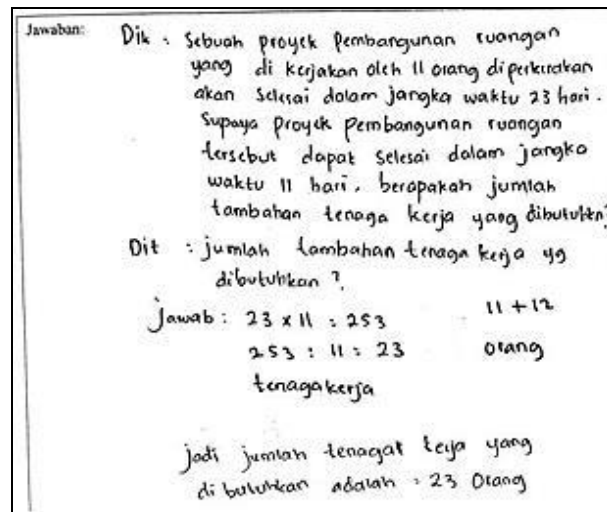 Jawaban:
Dik : Sebuah proyek Pembangunan ruangan
yang di kerjakan oleh 11 orang diperkirakan
akan selesai dalam jangka waktu 23 hari.
Supaya proyek pembangunan ruangan
tersebut dapat selesai dalam jangka
waktu 11 hari, berapakah jumlah
tambahan tenaga kerja yang dibutuhkn?
Dit : jumlah tambahan tenaga kerja yg
dibutuhkan ?
Jawab : 23 x 11 : 253 11 + 12
253 : 11 : 23 orang
tenagakerja
jadi jumlah tenagat kerja yang
di butuhkan adalah : 23 Orang